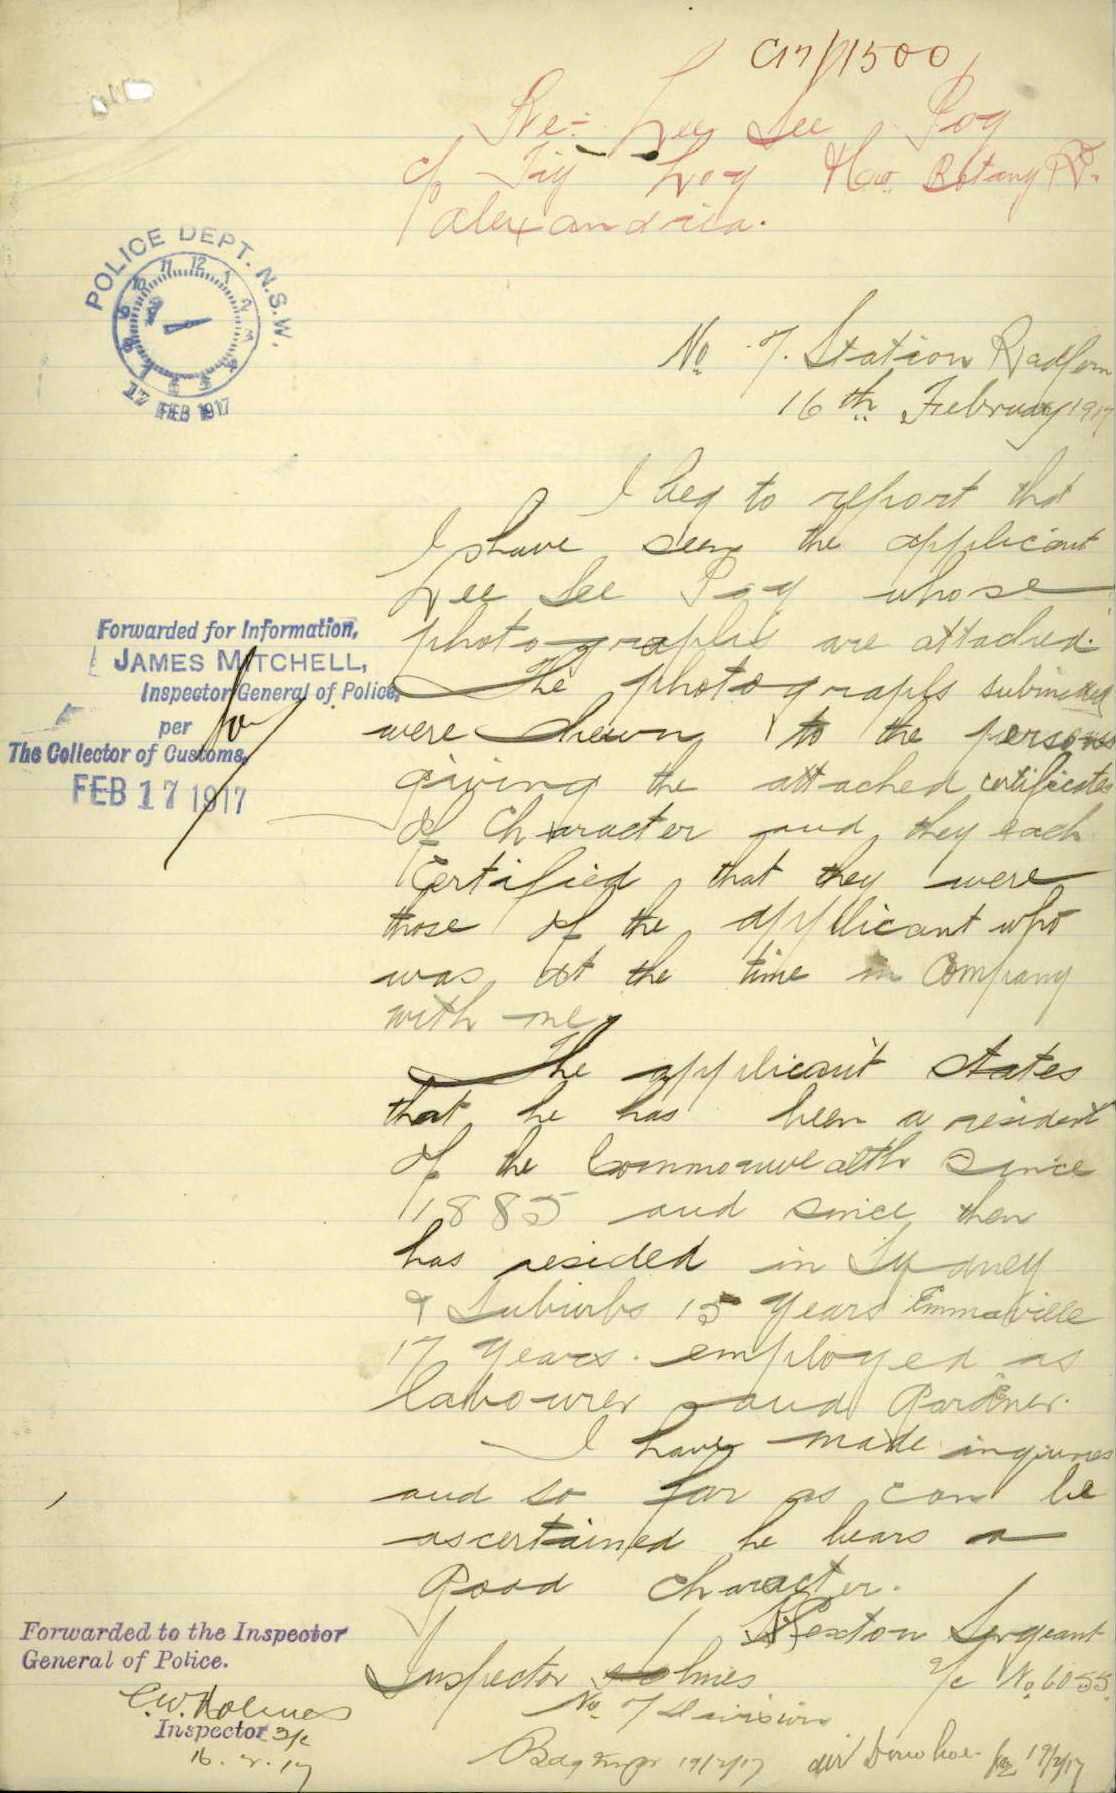 C17/1500
Re:- Lee See Poy
c/o Tiy Loy & Co. Botany Rd.
Alexandria.
POLICE DEPT. N.S.W.
17 FEB 1917
No. 7. Station Redfern
16th February 1917
I beg to report that
I have seen the applicant
Lee See Poy whose
photographs are attached.
The photographs submitted
were shewn to the persons
giving the attached certificates
of Character and they each
Certified that they were
those of the applicant who
was at the time in Company
with me.
The applicant states
that he has been a resident
of the Commonwealth since
1885 and since then
has resided in Sydney
& Suburbs 15 years Emmaville
17 years. employed as
labourer and Gardener.
I have made inquiries
and so far as can be
ascertained he bears a
Good Character.
Sexton Sergeant
o/c No. 6055
Inspector Holmes
No. 7 Division
19/2/17
Donohoe 19/2/17
Forwarded for Information,
JAMES MITCHELL,
Inspector General of Police,
per
The Collector of Customs,
FEB 17 1917
Forwarded to the Inspector
General of Police.
C.W. Holmes
Inspector
16.2.17